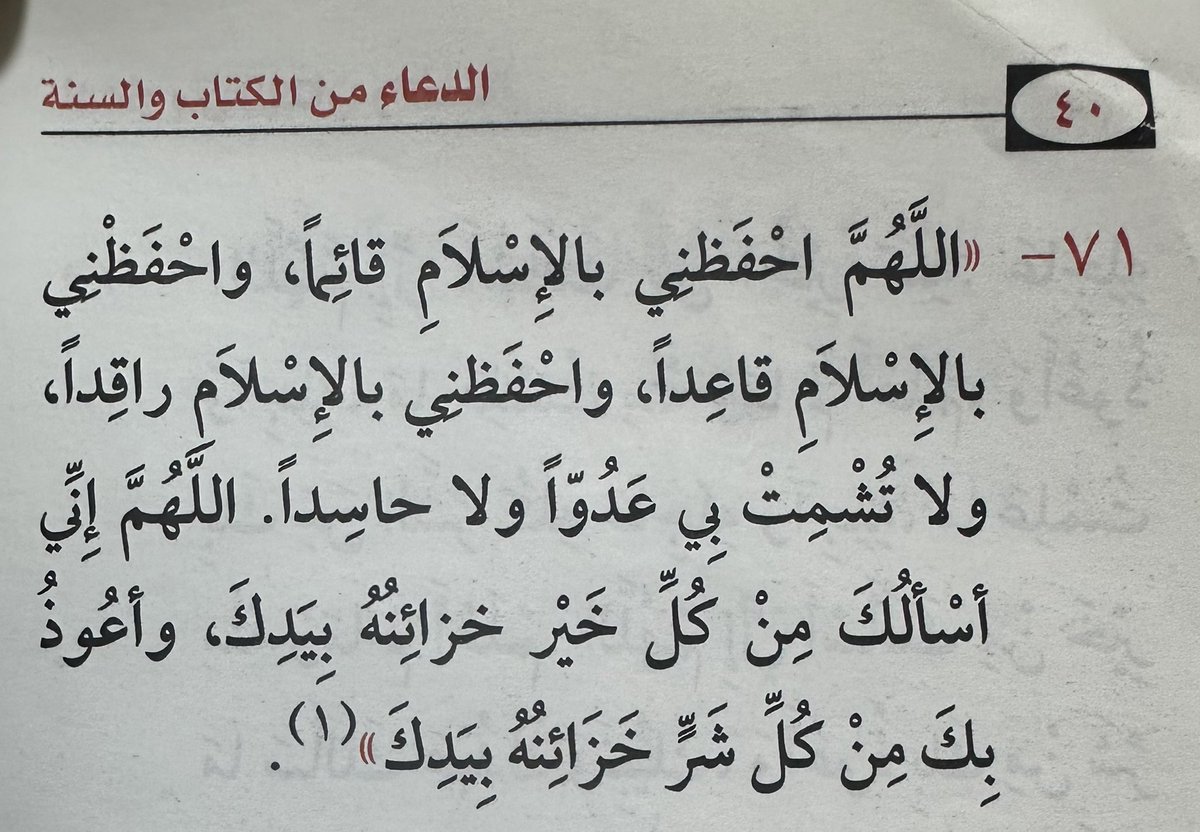 ٤٠ الدعاء من الكتاب والسنة
٧١- «اللَّهُمَّ احْفَظنِي بالإِسْلاَمِ قائِماً، واحْفَظْنِي
بالإِسْلاَمِ قاعِداً، واحْفَظنِي بالإِسْلاَم راقِداً،
ولا تُشْمِتْ بِي عَدُوّاً ولا حاسِداً. اللَّهُمَّ إِنِّي
أسْألُكَ مِنْ كُلِّ خَيْر خزائِنُهُ بِيَدِكَ، وأعُوذُ
بِكَ مِنْ كُلِّ شَرٍّ خَزَائِنُهُ بِيَدِكَ»(١).